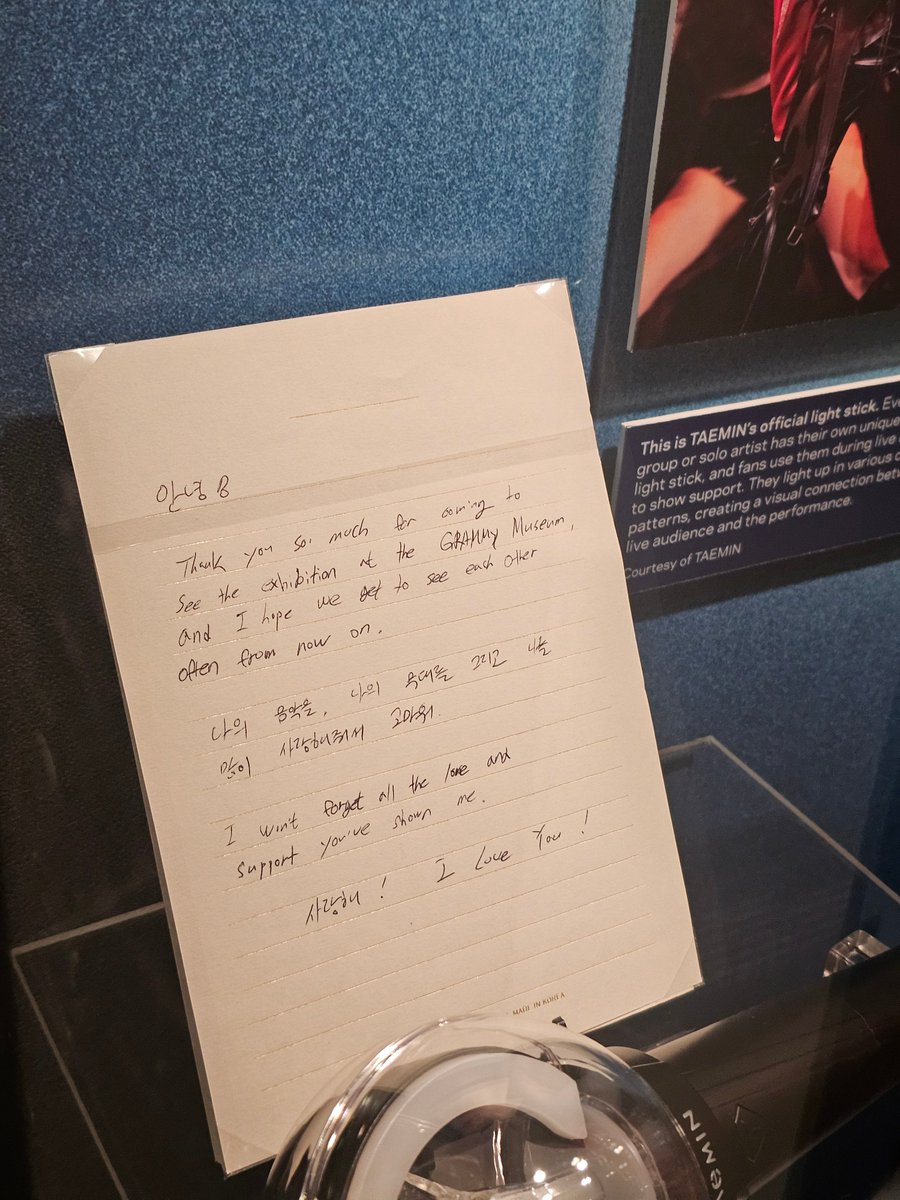 안녕
Thank you so much for coming to
see the exhibition at the GRAMMY Museum,
and I hope we get to see each other
often from now on.
나의 음악을, 나의 무대를 그리고 나를
많이 사랑해줘서 고마워.
I won't forget all the love and
support you've shown me.
사랑해! I Love You!
MADE IN KOREA
This is TAEMIN's official light stick.
group or solo artist has their own unique
light stick, and fans use them during live
to show support. They light up in various
patterns, creating a visual connection
live audience and the performance.
Courtesy of TAEMIN